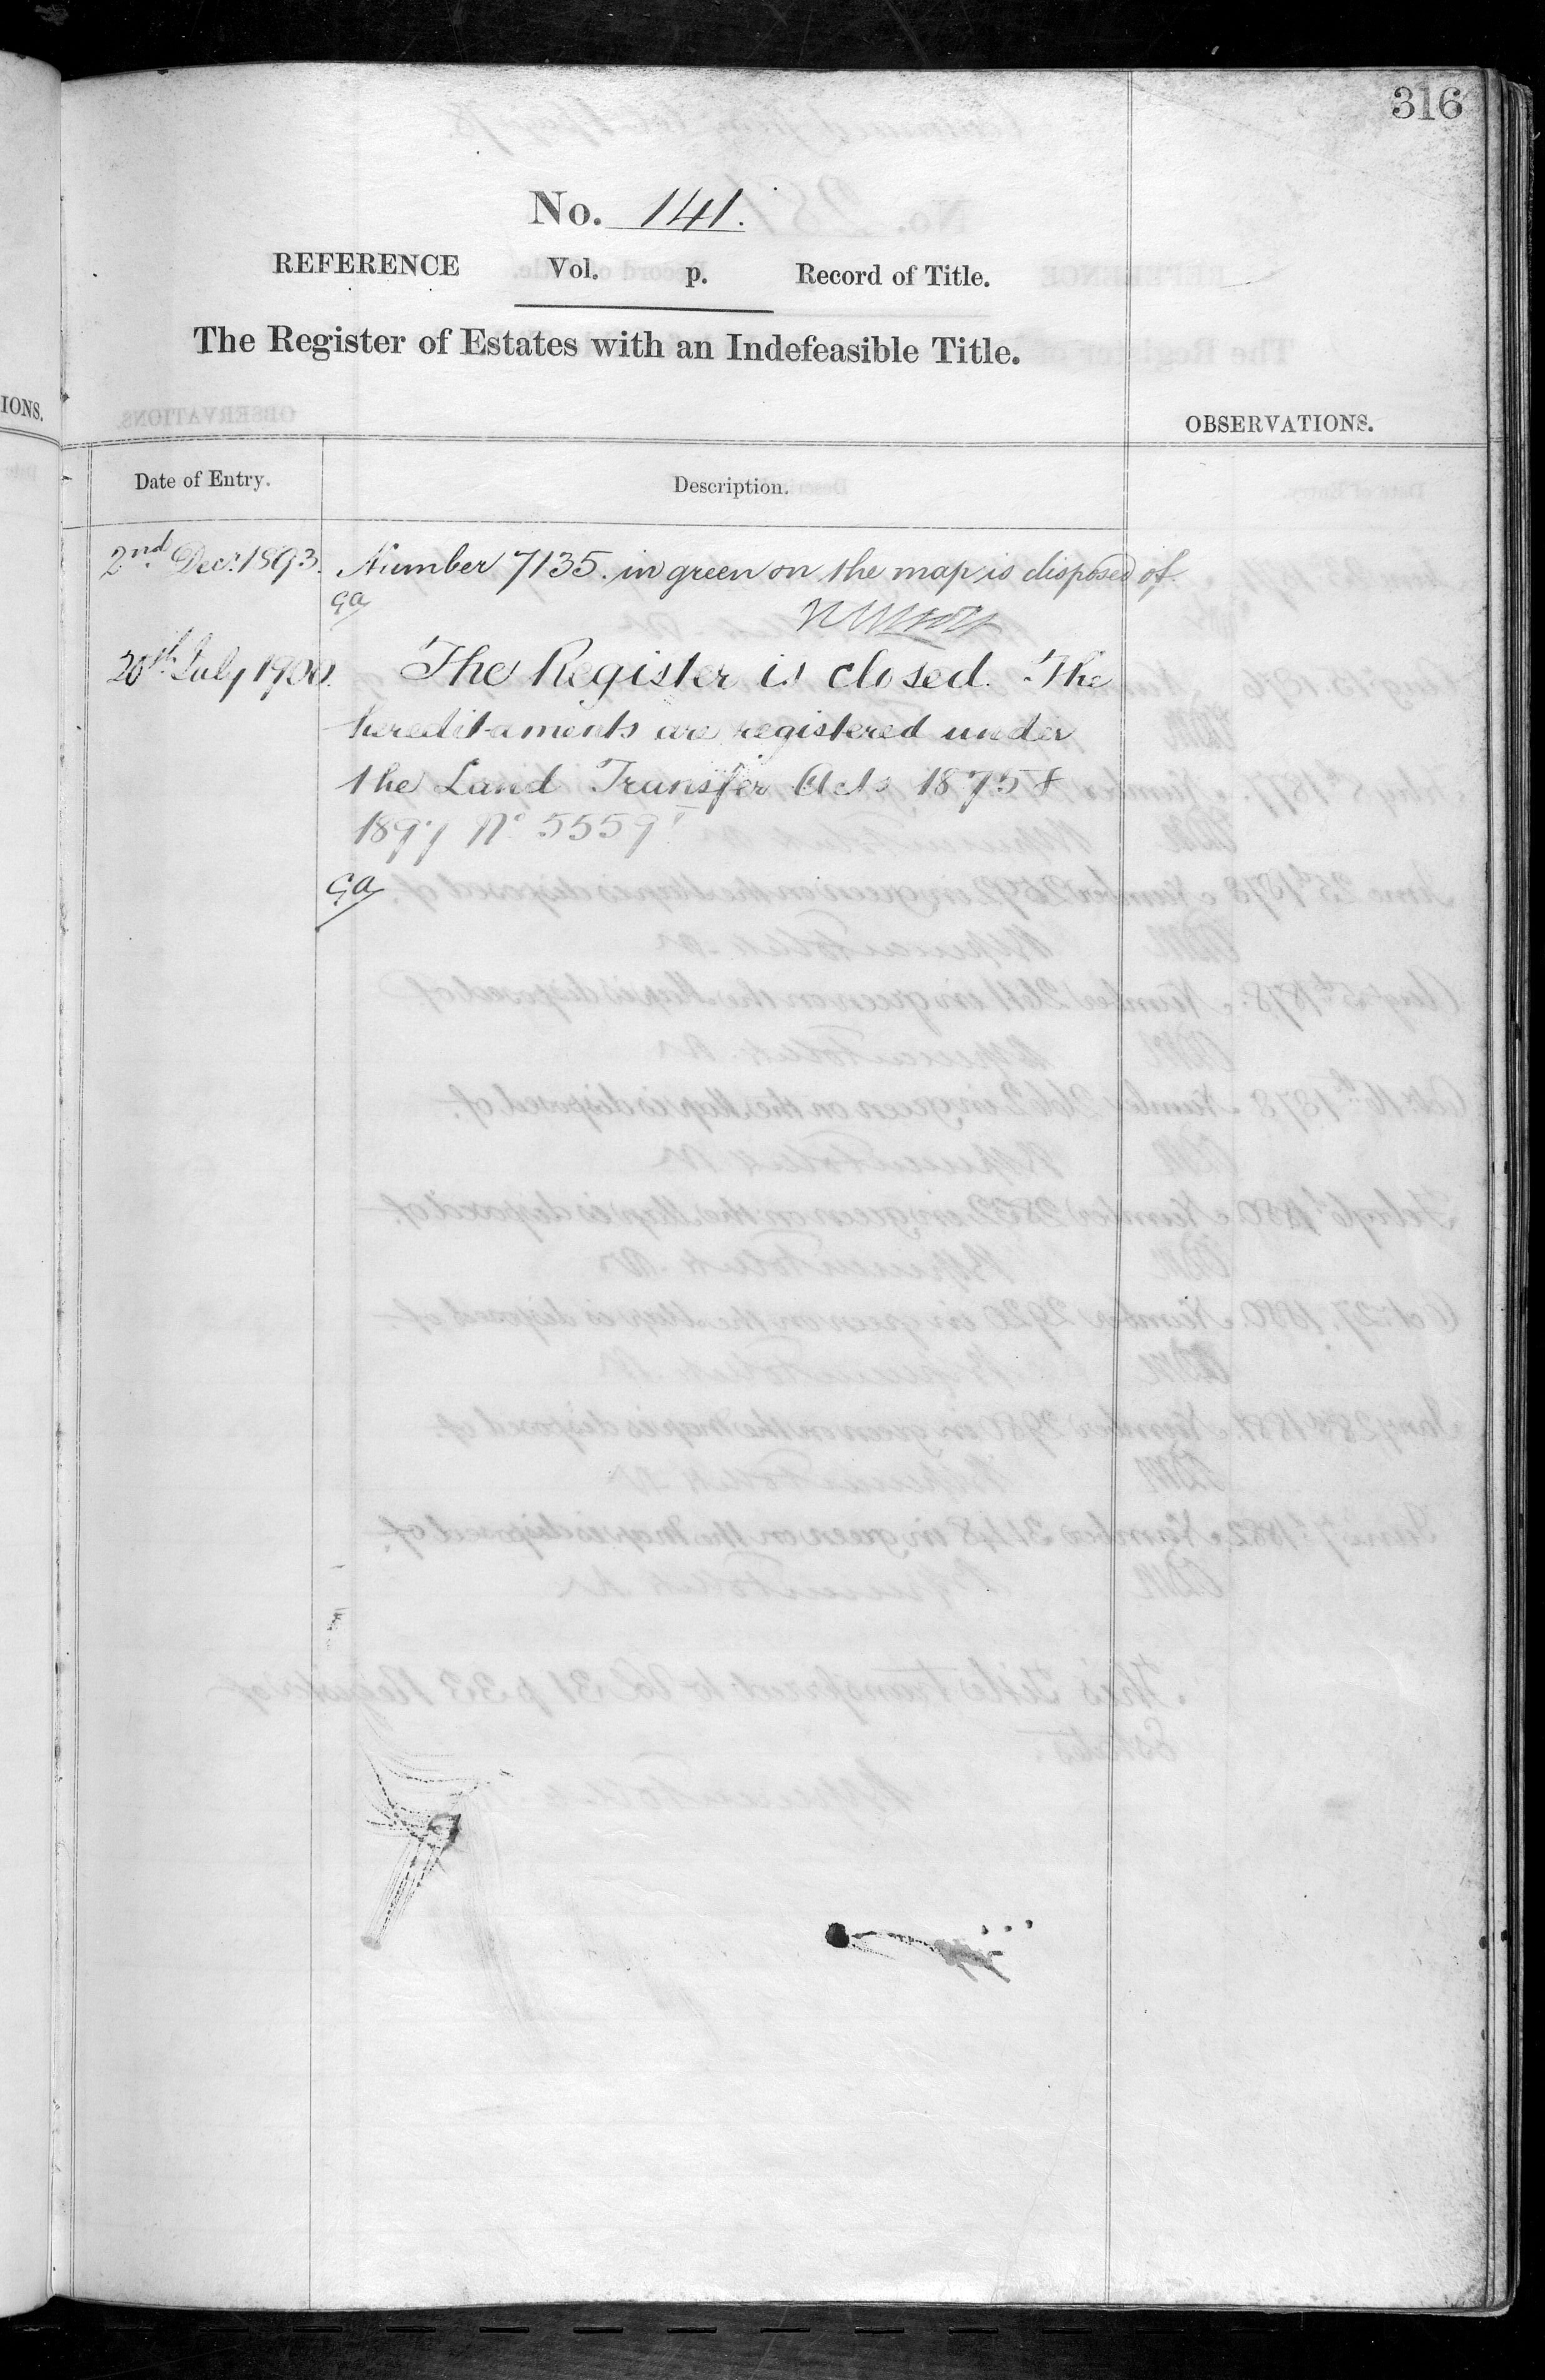 316
No. 141.
REFERENCE Vol. p. Record of Title.
The Register of Estates with an Indefeasible Title.
IONS.
OBSERVATIONS.
Date of Entry. Description.
2nd Decr. 1893. Number 7135. in green on the map is disposed of.
ga
20th July 1900. The Register is closed. The
hereditaments are registered under
the Land Transfer Acts 1875 &
1897 No 5559
ga